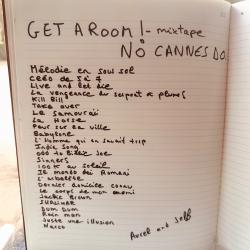 GET A ROOM! - mixtape
NO CANNES DO.
Mélodie en sous sol
Cléo de 5 à 7
Live and let die
La vengeance du serpent à plumes
Kill Bill
Take over
Le samouraï
La Horse
Peur sur la ville
Babylone
L'Homme qui en savait trop
Indie Song
Ode to Billie Joe
Sinners
100% au soleil
Il mondo dei Romani
L'arbalète
Dernier domicile connu
Le corps de mon ennemi
Jackie Brown
Dum Dum
Rain man
Juste une illusion
Marco
Avril and Self